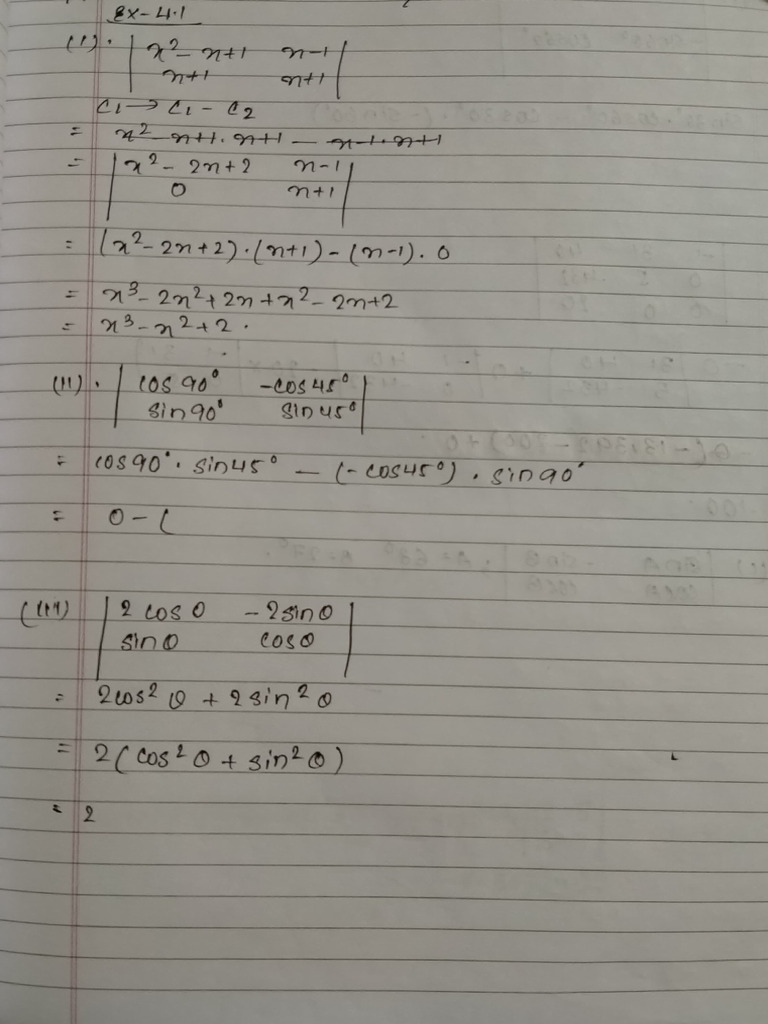 Ex-4.1
(I). | x² - x+1 x-1 |
| x+1 x+1 |
C1 → C1 - C2
= x² - x+1 . x+1 - x-1 . x+1
= | x² - 2x+2 x-1 |
| 0 x+1 |
= (x² - 2x+2) . (x+1) - (x-1) . 0
= x³ - 2x² + 2x + x² - 2x+2
= x³ - x² + 2 .
(II). | cos 90° -cos 45° |
| sin 90° sin 45° |
= cos 90° . sin 45° - (-cos 45°) . sin 90°
= 0 - (
(III) | 2 cos θ - 2 sin θ |
| sin θ cos θ |
= 2cos² θ + 2 sin² θ
= 2 (cos² θ + sin² θ)
= 2